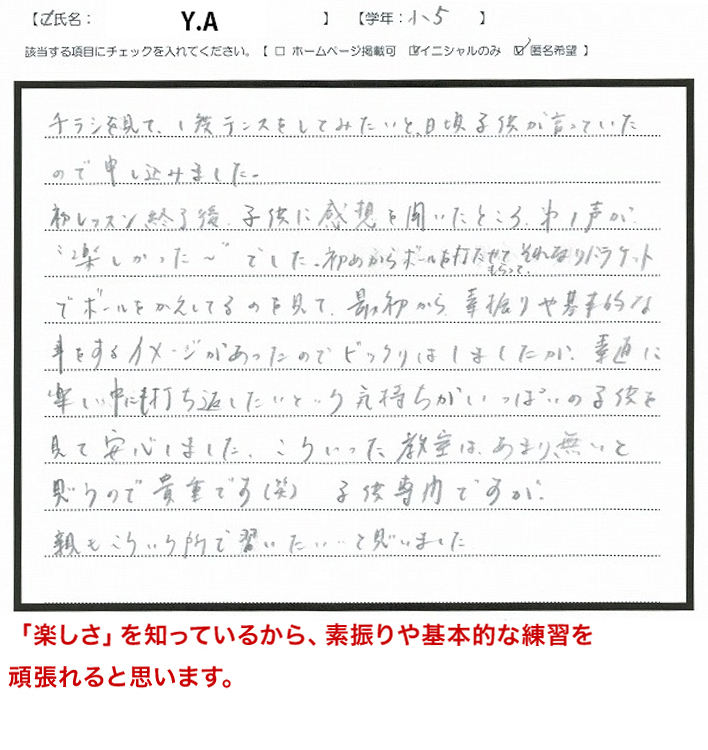 【ご氏名： Y.A 】 【学年：小5 】
該当する項目にチェックを入れてください。【 □ ホームページ掲載可 ☑イニシャルのみ ☑ 匿名希望 】
チラシを見て、1度テニスをしてみたいと、日頃子供が言っていた
ので申し込みました。
初レッスン終了後、子供に感想を聞いたところ、第1声が、
"楽しかった〜" でした。初めからボールを打たせてもらって、それなりにラケット
でボールをかえしてるのを見て、最初から、素振りや基本的な
事をするイメージがあったのでビックリはしましたが、素直に
楽しい中にも打ち返したいという気持ちがいっぱいの子供を
見て安心しました。こういった教室は、あまり無いと
思うので貴重です(笑) 子供専門ですが、
親もこういう所で習いたい…と思いました
「楽しさ」を知っているから、素振りや基本的な練習を
頑張れると思います。